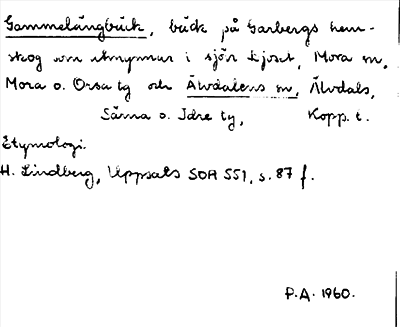 Gammelängbäck, bäck på Garbergs hem-
skog som utmynnar i sjön Ejset, Mora sn,
Mora o. Orsa tg och Älvdalens sn, Älvdals,
Särna o. Idre tg, Kopp. t.
Etymologi.
H. Lindberg, Uppsats SOA 551, s. 87 f.
P.A. 1960.